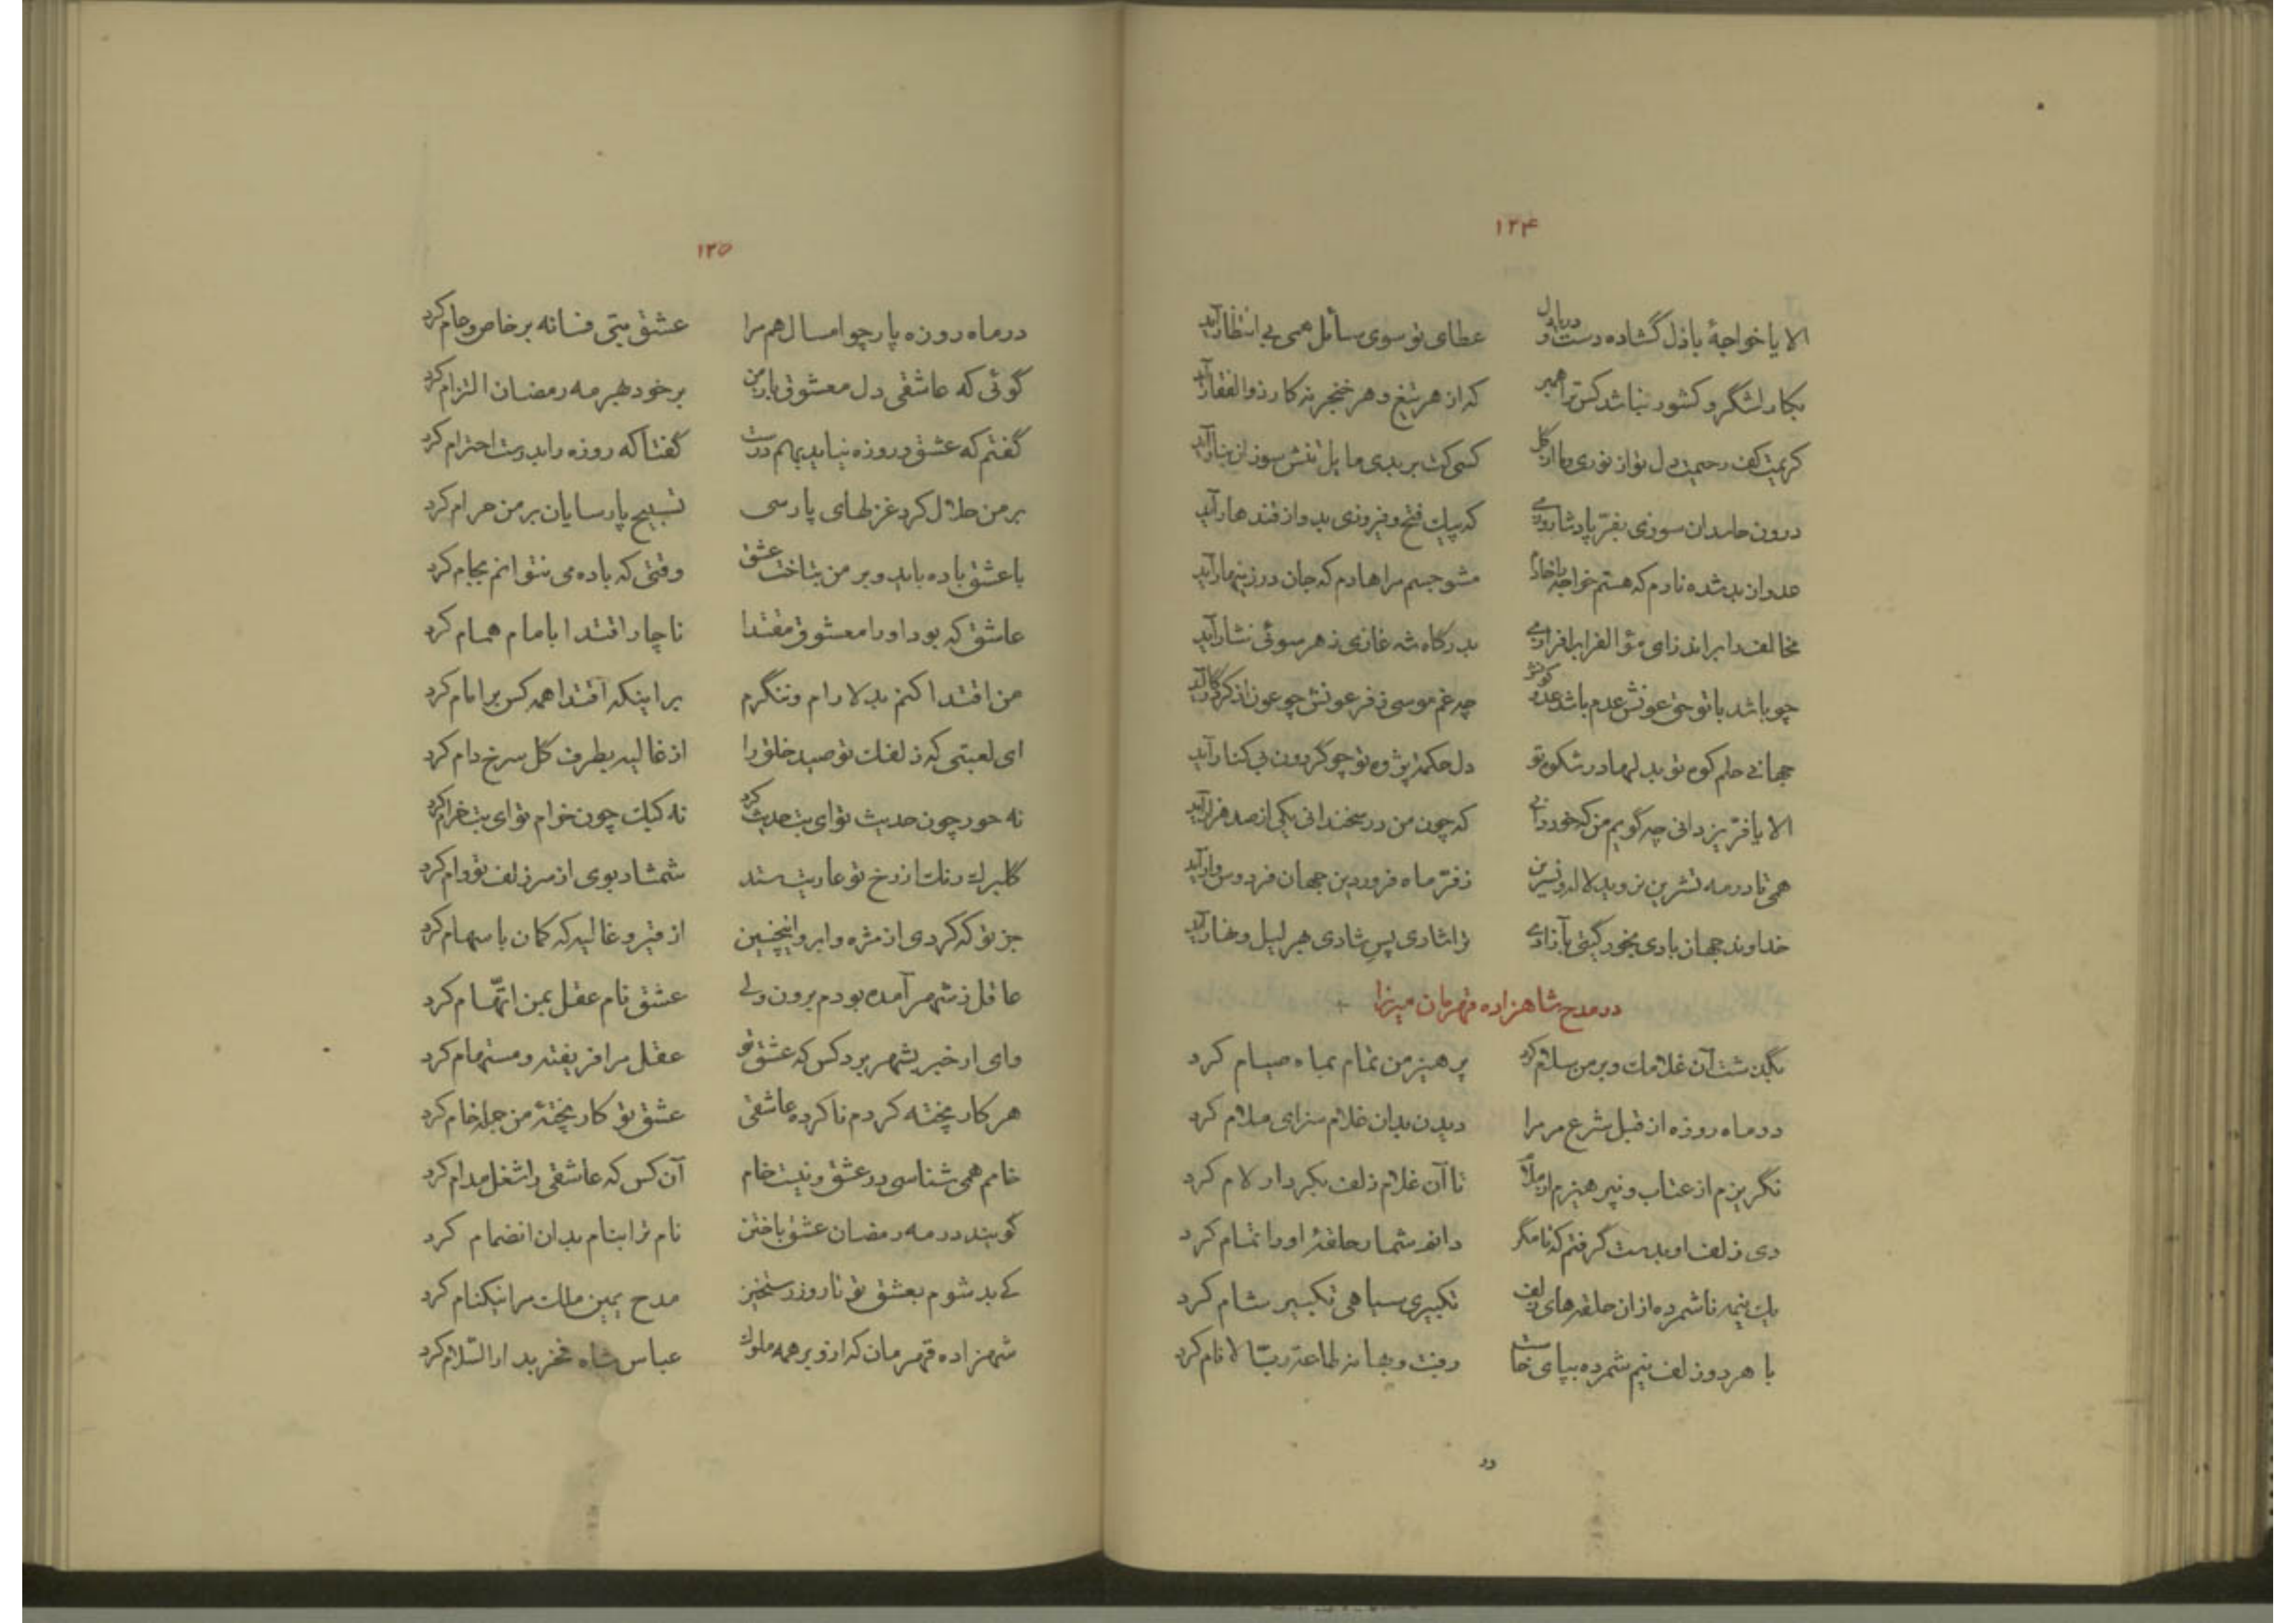 ۱۲۴
الا یا خواجهٔ باذل گشاده دست و دریادل عطای تو سوی سائل همی بی انتظار آید
بکار لشگر و کشور نباشد کس ترا همبر که از هر تیغ و هر خنجر نه کار ذوالفقار آید
کریمت کف رحیمت دل تو از نوری نه از گل کسی کت بر بدی مایل تنش سوزان بنار آید
درون حاسدان سوزی بفرّ پادشا روزی که پیک فتح و فیروزی بدو از قندهار آید
عدو ان بد شده نادم که هستم خواجه را خادم مشو جسم مرا هادم که جان در زینهار آید
مخالف را براندازی مؤالف را برافرازی بدرگاه شه غازی ز هر سوئی نثار آید
چو باشد با تو حق عونش عدم باشد عدو کونش چه غم موسی ز فرعونش چو عون از کردگار آید
جهانی حلم کوه تو بدلها در شکوه تو دل حکمت پژوه تو چو گردون بی کنار آید
الا یا فرّ یزدانی چه گویم من که خود دانی که چون من در سخندانی یکی از صد هزار آید
همی تا در مه تشرین نروید لاله و نسرین ز فرّ ماه فروردین جهان فردوس وار آید
خداوند جهان بادی بخور گیتی بآزادی ترا شادی پس شادی بهر لیل و نهار آید
در مدح شاهزاده قهرمان میرزا
بگذشت آن غلامک و بر من سلام کرد پرهیز من تمام بماه صیام کرد
در ماه روزه از قبل شرع مر مرا دیدن بدان غلام سزای ملام کرد
نگریزم از عتاب و نپرهیزم از ملام تا آن غلام زلف بکردار لام کرد
دی زلف او بدست گرفتم که تا مگر دانم شمار حلقهٔ او را تمام کرد
یک نیمه ناشمرده از آن حلقه‌های زلف تکبیری سپاهی تکبیر شام کرد
با هر دو زلف نیم شمرده بپای خاست رفت و بهانه طاعت ربّ الانام کرد
در
۱۲۵
در ماه روزه پار چو امسال هم مرا عشق بتی فسانه بر خاص و عام کرد
گوئی که عاشقی دل معشوق یار من بر خود بهر مه رمضان التزام کرد
گفتم که عشق و روزه نیاید بهم درست گفتا که روزه را بدرست احترام کرد
بر من حلال کرد غزلهای پارسی تسبیح پارسایان بر من حرام کرد
با عشق باده باید و بر من بتاخت عشق وقتی که باده می نتوانم بجام کرد
عاشق که بود او را معشوق مقتدا ناچار اقتدا بامام همام کرد
من اقتدا کنم بدلارام و ننگرم بر اینکه اقتدا همه کس بر امام کرد
ای لعبتی که زلفک تو صید خلق را از غالیه بطرف گل سرخ دام کرد
نه حور چون حدیث تو ای بت حدیث کرد نه کبک چون خرام تو ای بت خرام کرد
گلبرگ رنگ از رخ تو عاریت ستد شمشاد بوی از سر زلف تو وام کرد
جز تو که کردی از مژه و ابرو اینچنین از قیر و غالیه که کمان با سهام کرد
عاقل ز شهر آمده بودم برون ولی عشق نام عقل بمن اتّهام کرد
وای ار خبر بشهر برد کس که عشق تو عقل مرا فریفته و مستهام کرد
هر کار پخته کردم ناکرده عاشقی عشق تو کار پختهٔ من جمله خام کرد
خامم همی شناسی در عشق و نیست خام آن کس که عاشقی را شغل مدام کرد
گویند در مه رمضان عشق باختن نام ترا بنام بدان انضمام کرد
کی بد شوم بعشق تو تا روز رستخیز مدح یمین ملک مرا نیکنام کرد
شهزاده قهرمان که ازو بر همه ملوک عباس شاه فخر بدارالسّلام کرد